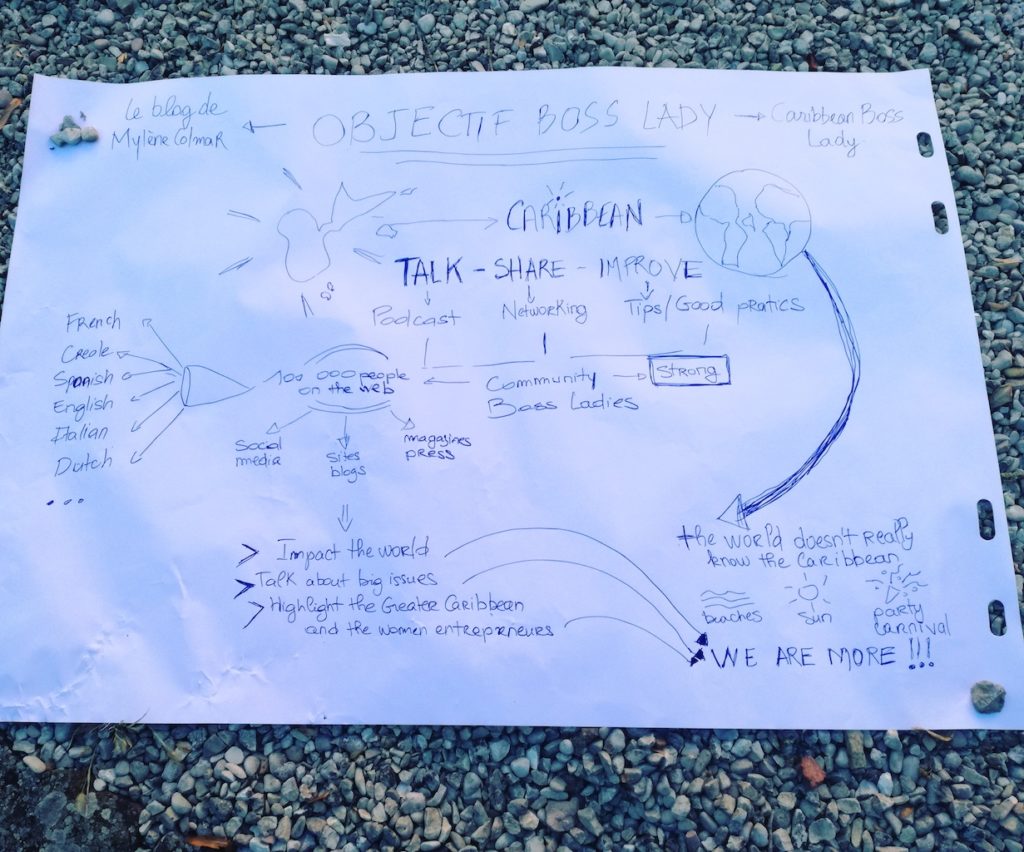 Le blog de
Mylène Colmar
OBJECTIF BOSS LADY
Caribbean Boss
Lady
CARIBBEAN
TALK - SHARE - IMPROVE
Podcast
Networking
Tips/Good pratics
French
Creole
Spanish
English
Italian
Dutch
...
100 000 people
on the web
Community
Boss Ladies
STRONG
Social
media
Sites
blogs
magazines
press
> Impact the world
> Talk about big issues
> Highlight the Greater Caribbean
and the women entrepreneurs
the world doesn't Really
know the Caribbean
beaches
sun
party
carnival
WE ARE MORE !!!